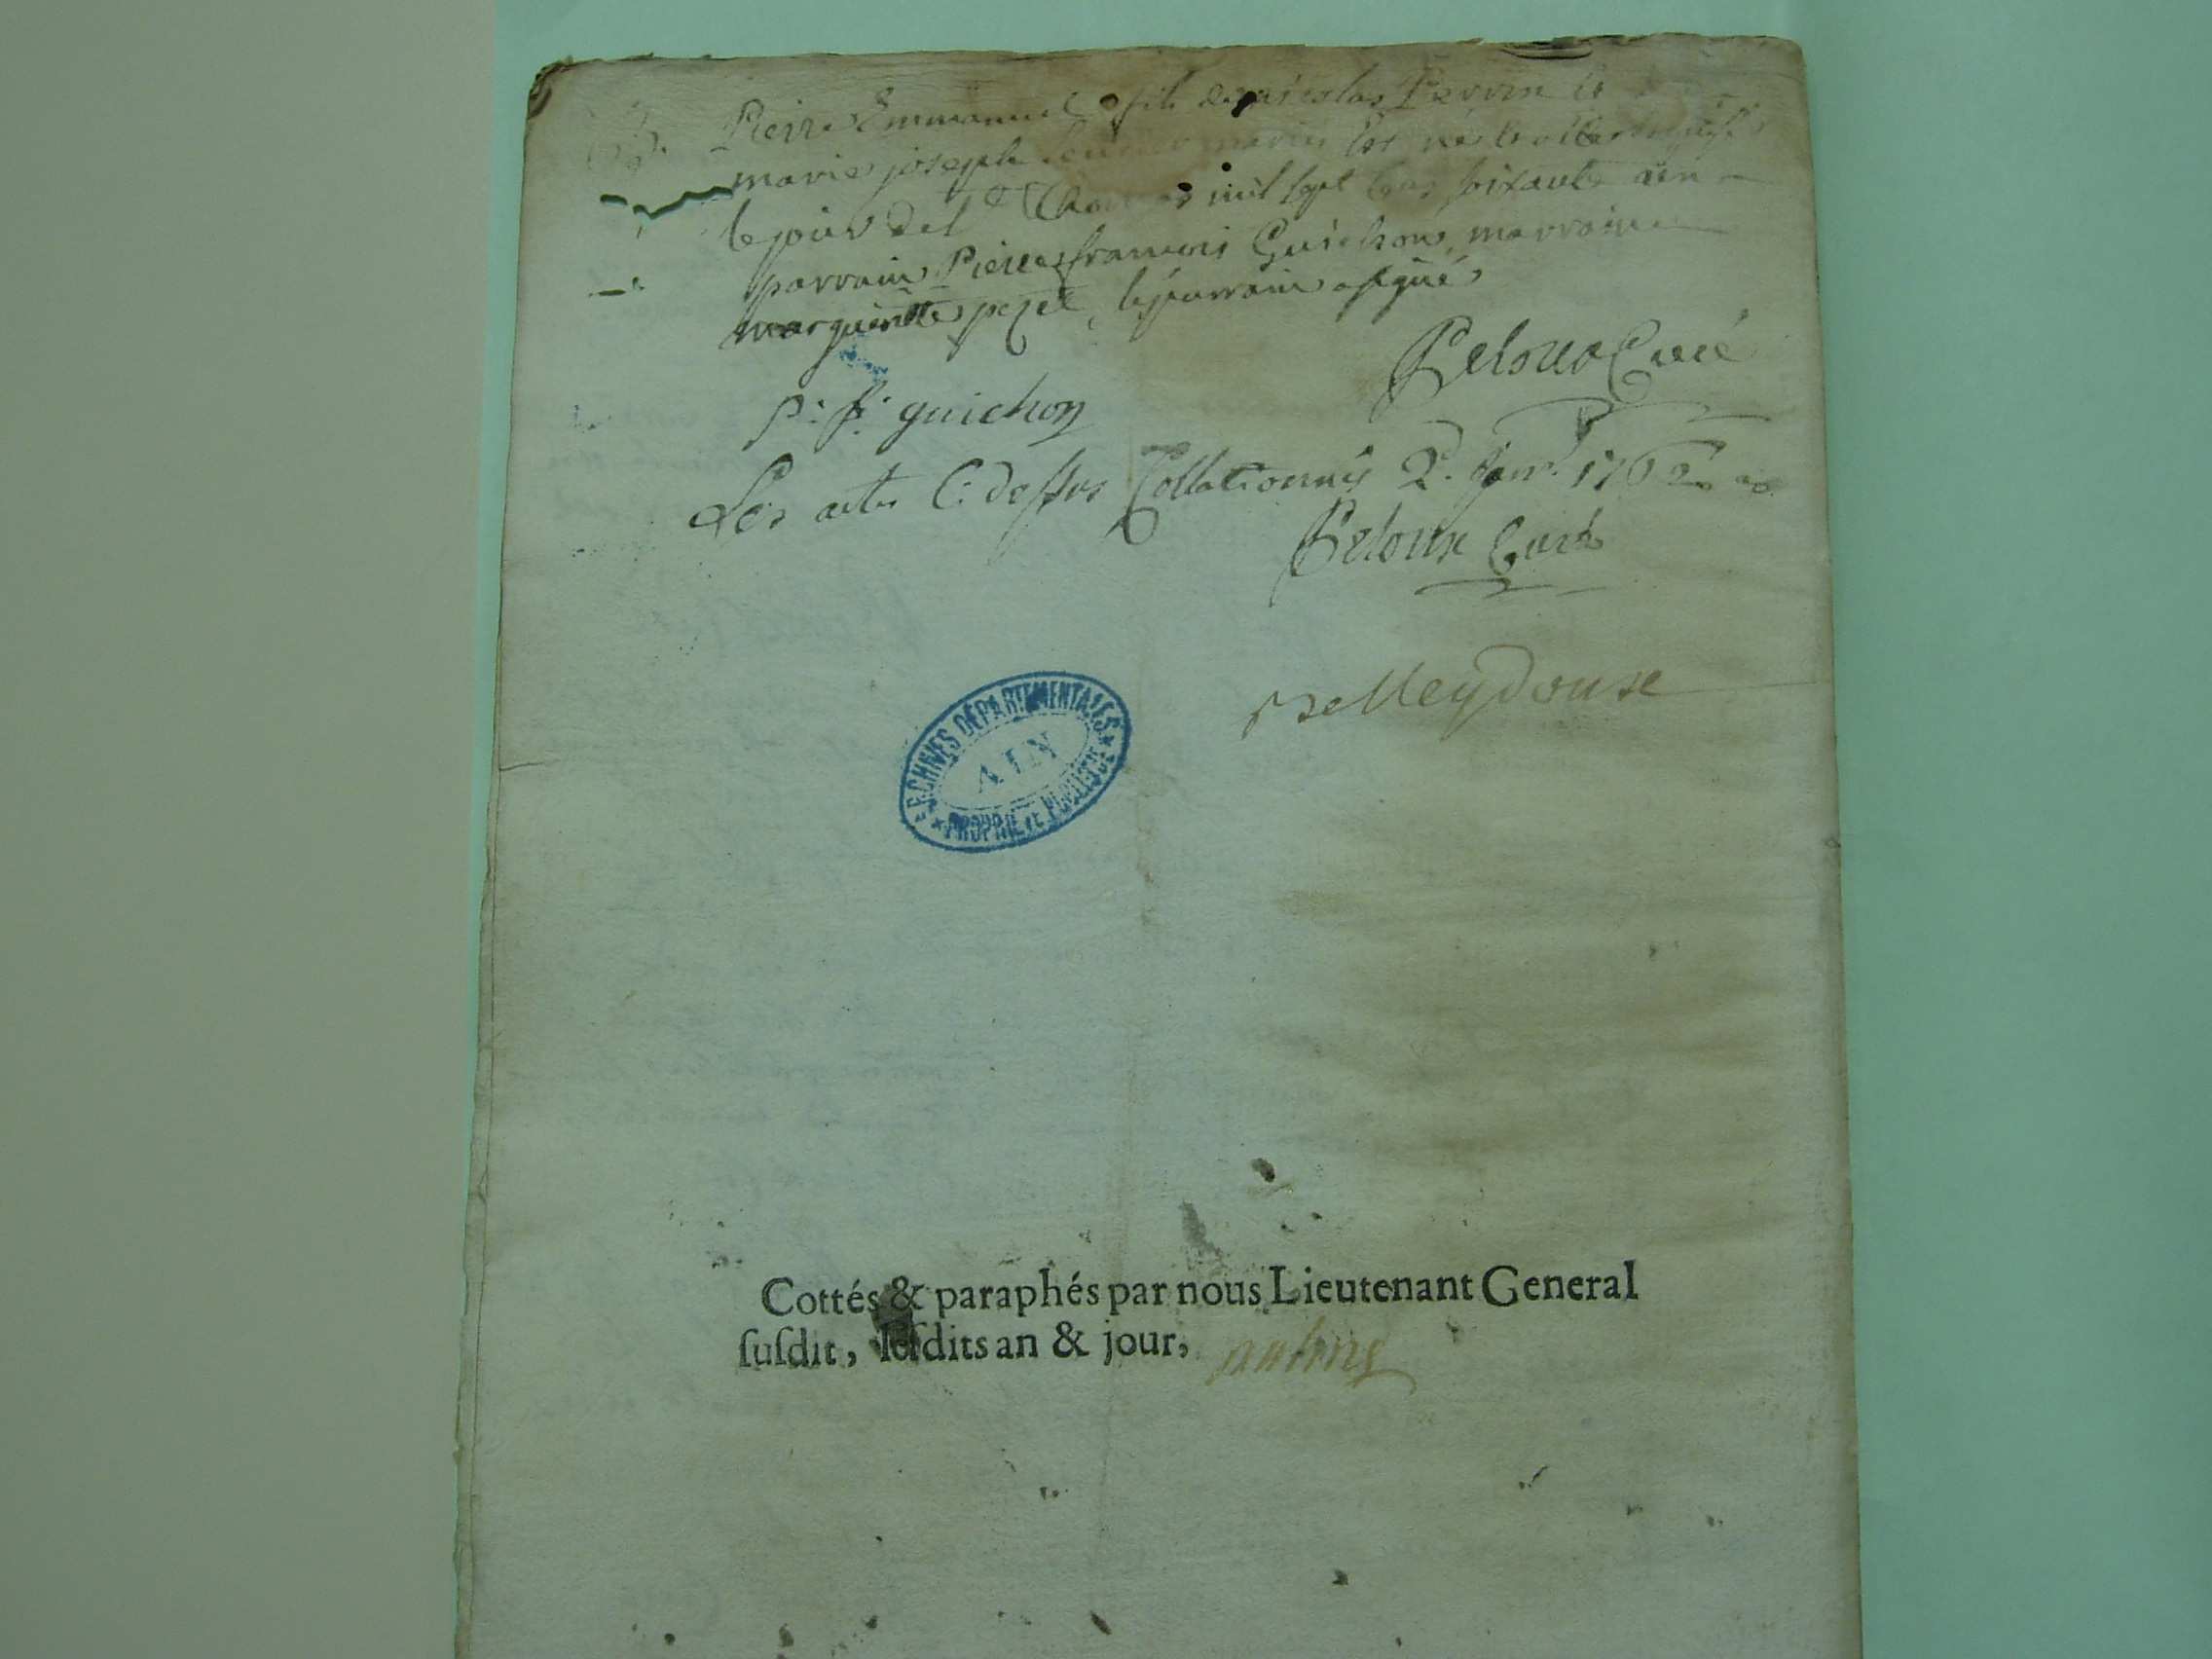 Pierre Emmanuel fils de nicolas Perrin et
marie joseph mariés est né et
le jour de st Thomas mil sept cens soixante un
parrain Pierre françois Guichon, marraine
marguerite pezet, le parrain a signé
Peloux Curé
p: f: guichon
Les actes Ci dessus Collationnés 2. janv. 1762
Peloux Curé
Belleydoux
ARCHIVES DÉPARTEMENTALES
AIN
PROPRIÉTÉ PUBLIQUE
Cottés & paraphés par nous Lieutenant General
ſuſdit, leſdits an & jour,